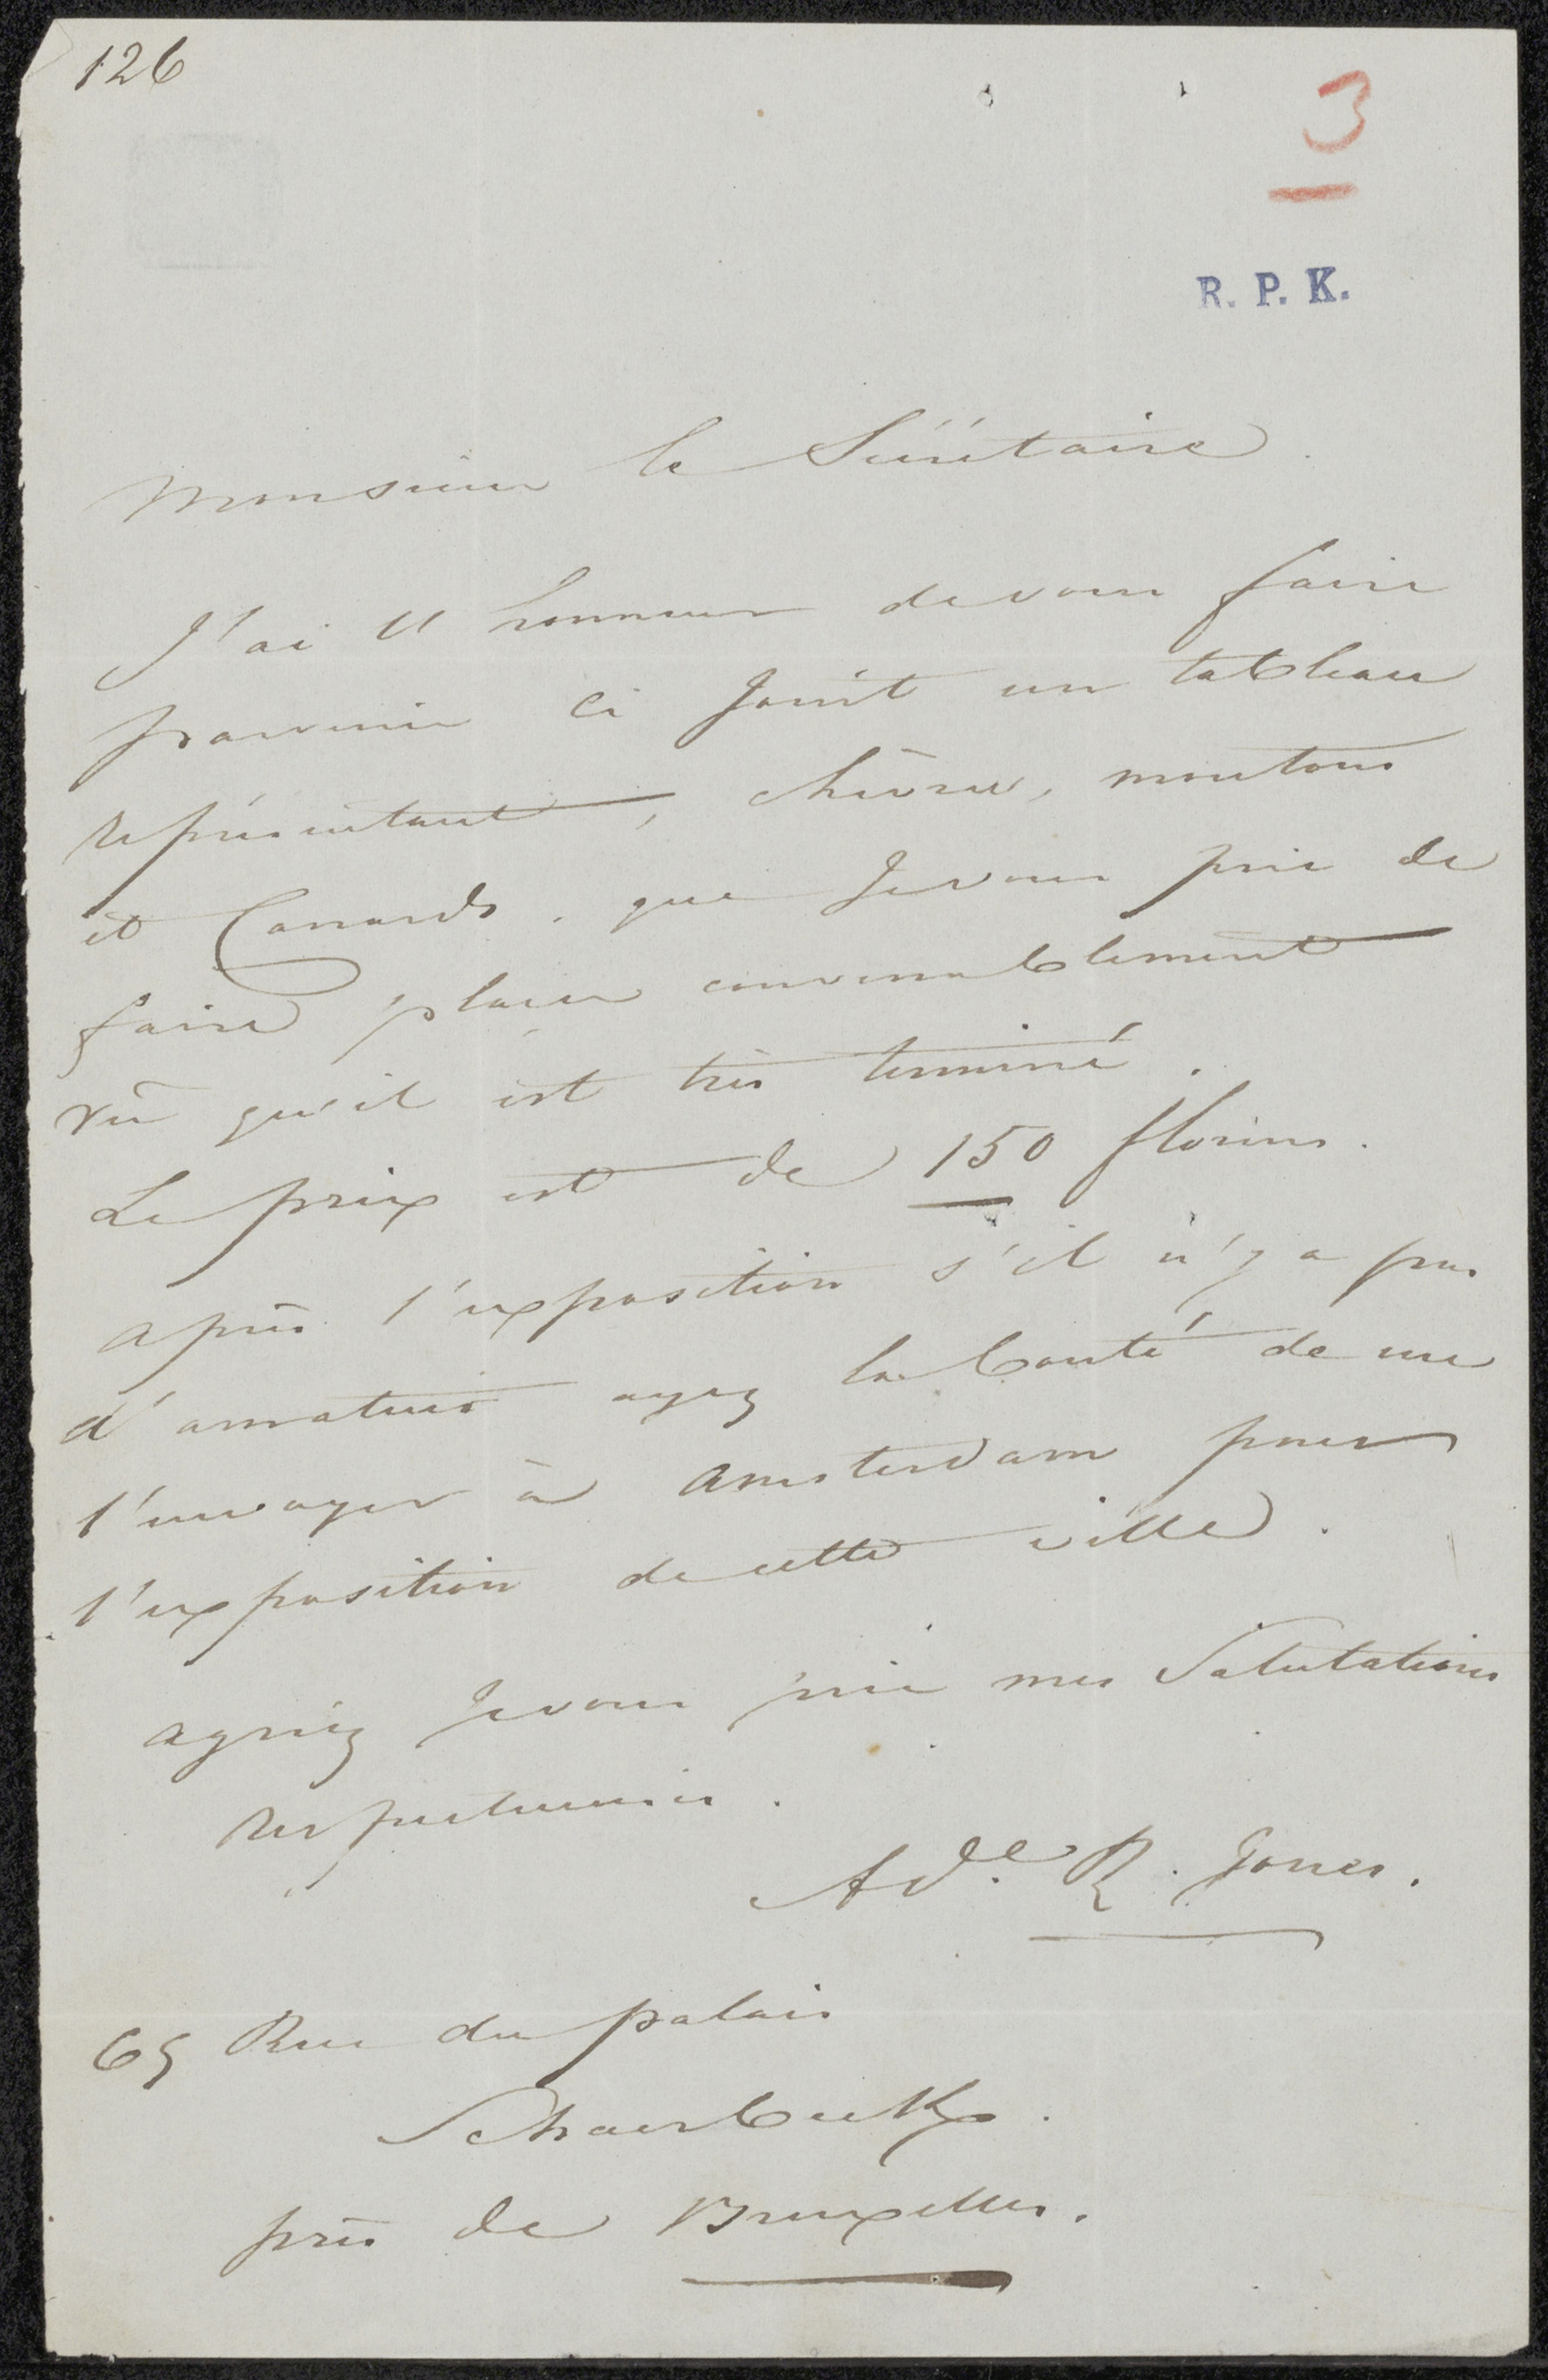 126
3
R. P. K.
Monsieur le Secrétaire.
J'ai l'honneur de vous faire
parvenir ci Joint un tableau
représentant, chèvres, moutons
et Canards. que Je vous prie de
faire placer convenablement
vû qu'il est très terminé.
Le prix est de 150 florins.
après l'exposition s'il n'y a pas
d'amateurs ayez la bonté de me
l'envoyer à Amsterdam pour
l'exposition de cette ville.
agréez Je vous prie mes Salutations
respectueuses.
Ade. R. Jones.
65 Rue du palais
Schaerbeek
près de Bruxelles.